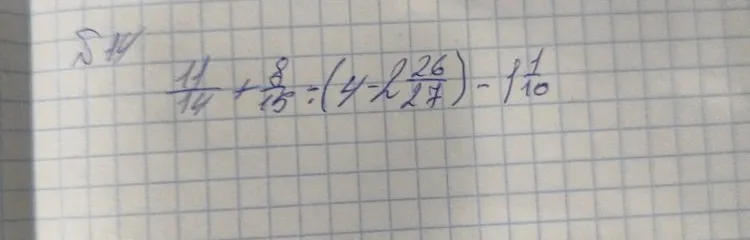 Б 14
11/14 + 8/15 : (4 - 2 26/27) - 1 1/10